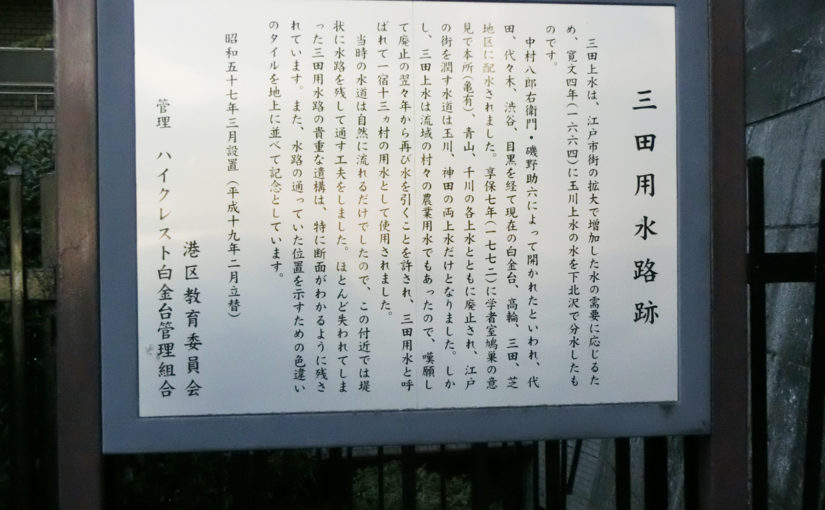 三田用水路跡
三田上水は、江戸市街の拡大で増加した水の需要に応じるた
め、寛文四年(一六六四)に玉川上水の水を下北沢で分水したも
のです。
中村八郎右衛門・磯野助六によって開かれたといわれ、代
田、代々木、渋谷、目黒を経て現在の白金台、高輪、三田、芝
地区に配水されました。享保七年(一七七二)に学者室鳩巣の意
見で本所(亀有)、青山、千川の各上水とともに廃止され、江戸
の街を潤す水道は玉川、神田の両上水だけとなりました。しか
し、三田上水は流域の村々の農業用水でもあったので、嘆願し
て廃止の翌々年から再び水を引くことを許され、三田用水と呼
ばれて一宿十三ヵ村の用水として使用されました。
当時の水道は自然に流れるだけでしたので、この付近では堤
状に水路を残して通す工夫をしました。ほとんど失われてしま
った三田用水路の貴重な遺構は、特に断面がわかるように残さ
れています。また、水路の通っていた位置を示すための色違い
のタイルを地上に並べて記念としています。
昭和五十七年三月設置(平成十九年二月立替)
港区教育委員会
管理 ハイクレスト白金台管理組合